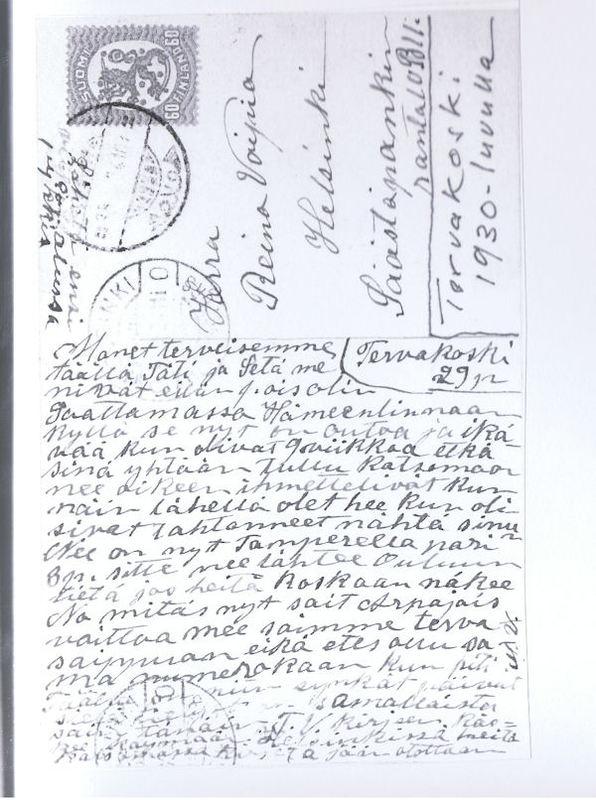 SUOMI FINLAND
60 60
Herra
Reino Voipio
Helsinki
Säästöpankin
ranta 10 B 11.
Tervakoski
1930-luvulla
NKI
10
Tervakoski
29 p
Monet terveisemme
täältä Täti ja Setä me
nivät eilen pois olin
Saattamassa Hämeenlinnaan
Kyllä se nyt on outoa ja ikä
vää kun olivat 9 viikkoa etkä
sinä yhtään tullu katsomaan
nee oikeen ihmettelivät kun
näin lähellä olet hee kun oli
sivat lahtonneet nähtä sinu
Nee on nyt Tamperella pari
3 p. sitte nee lähtee Ouluun
tietä jos heitä koskaan näkee
No mitäs nyt sait Arpajais
voittoa mee saimme terva
saippuan eikä etes ollu sa
ma numerokaan kun piti
Täällä niin synkät päivät
samallaista
sain tänään T.V. kirjeen
Helsinkissä meitä
jään otottaan